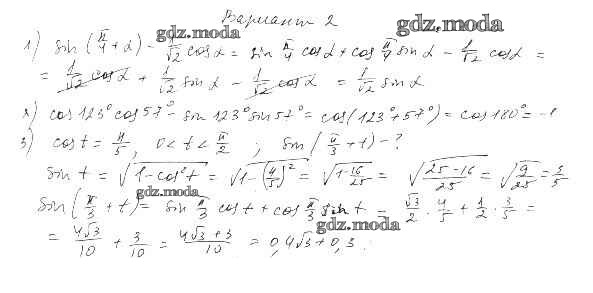 Вариант 2
gdz.moda
gdz.moda
1) sin(π/4 + α) - 1/√2 cosα = sin π/4 cosα + cos π/4 sinα - 1/√2 cosα =
= 1/√2 cosα + 1/√2 sinα - 1/√2 cosα = 1/√2 sinα
2) cos123° cos57° - sin123° sin57° = cos(123° + 57°) = cos180° = -1
3) cos t = 4/5, 0 < t < π/2, sin(π/3 + t) - ?
sin t = √(1 - cos² t) = √(1 - (4/5)²) = √(1 - 16/25) = √((25 - 16)/25) = √(9/25) = 3/5
gdz.moda
sin(π/3 + t) = sin π/3 cos t + cos π/3 sin t = √3/2 · 4/5 + 1/2 · 3/5 =
gdz.moda
= 4√3/10 + 3/10 = (4√3 + 3)/10 = 0,4√3 + 0,3.